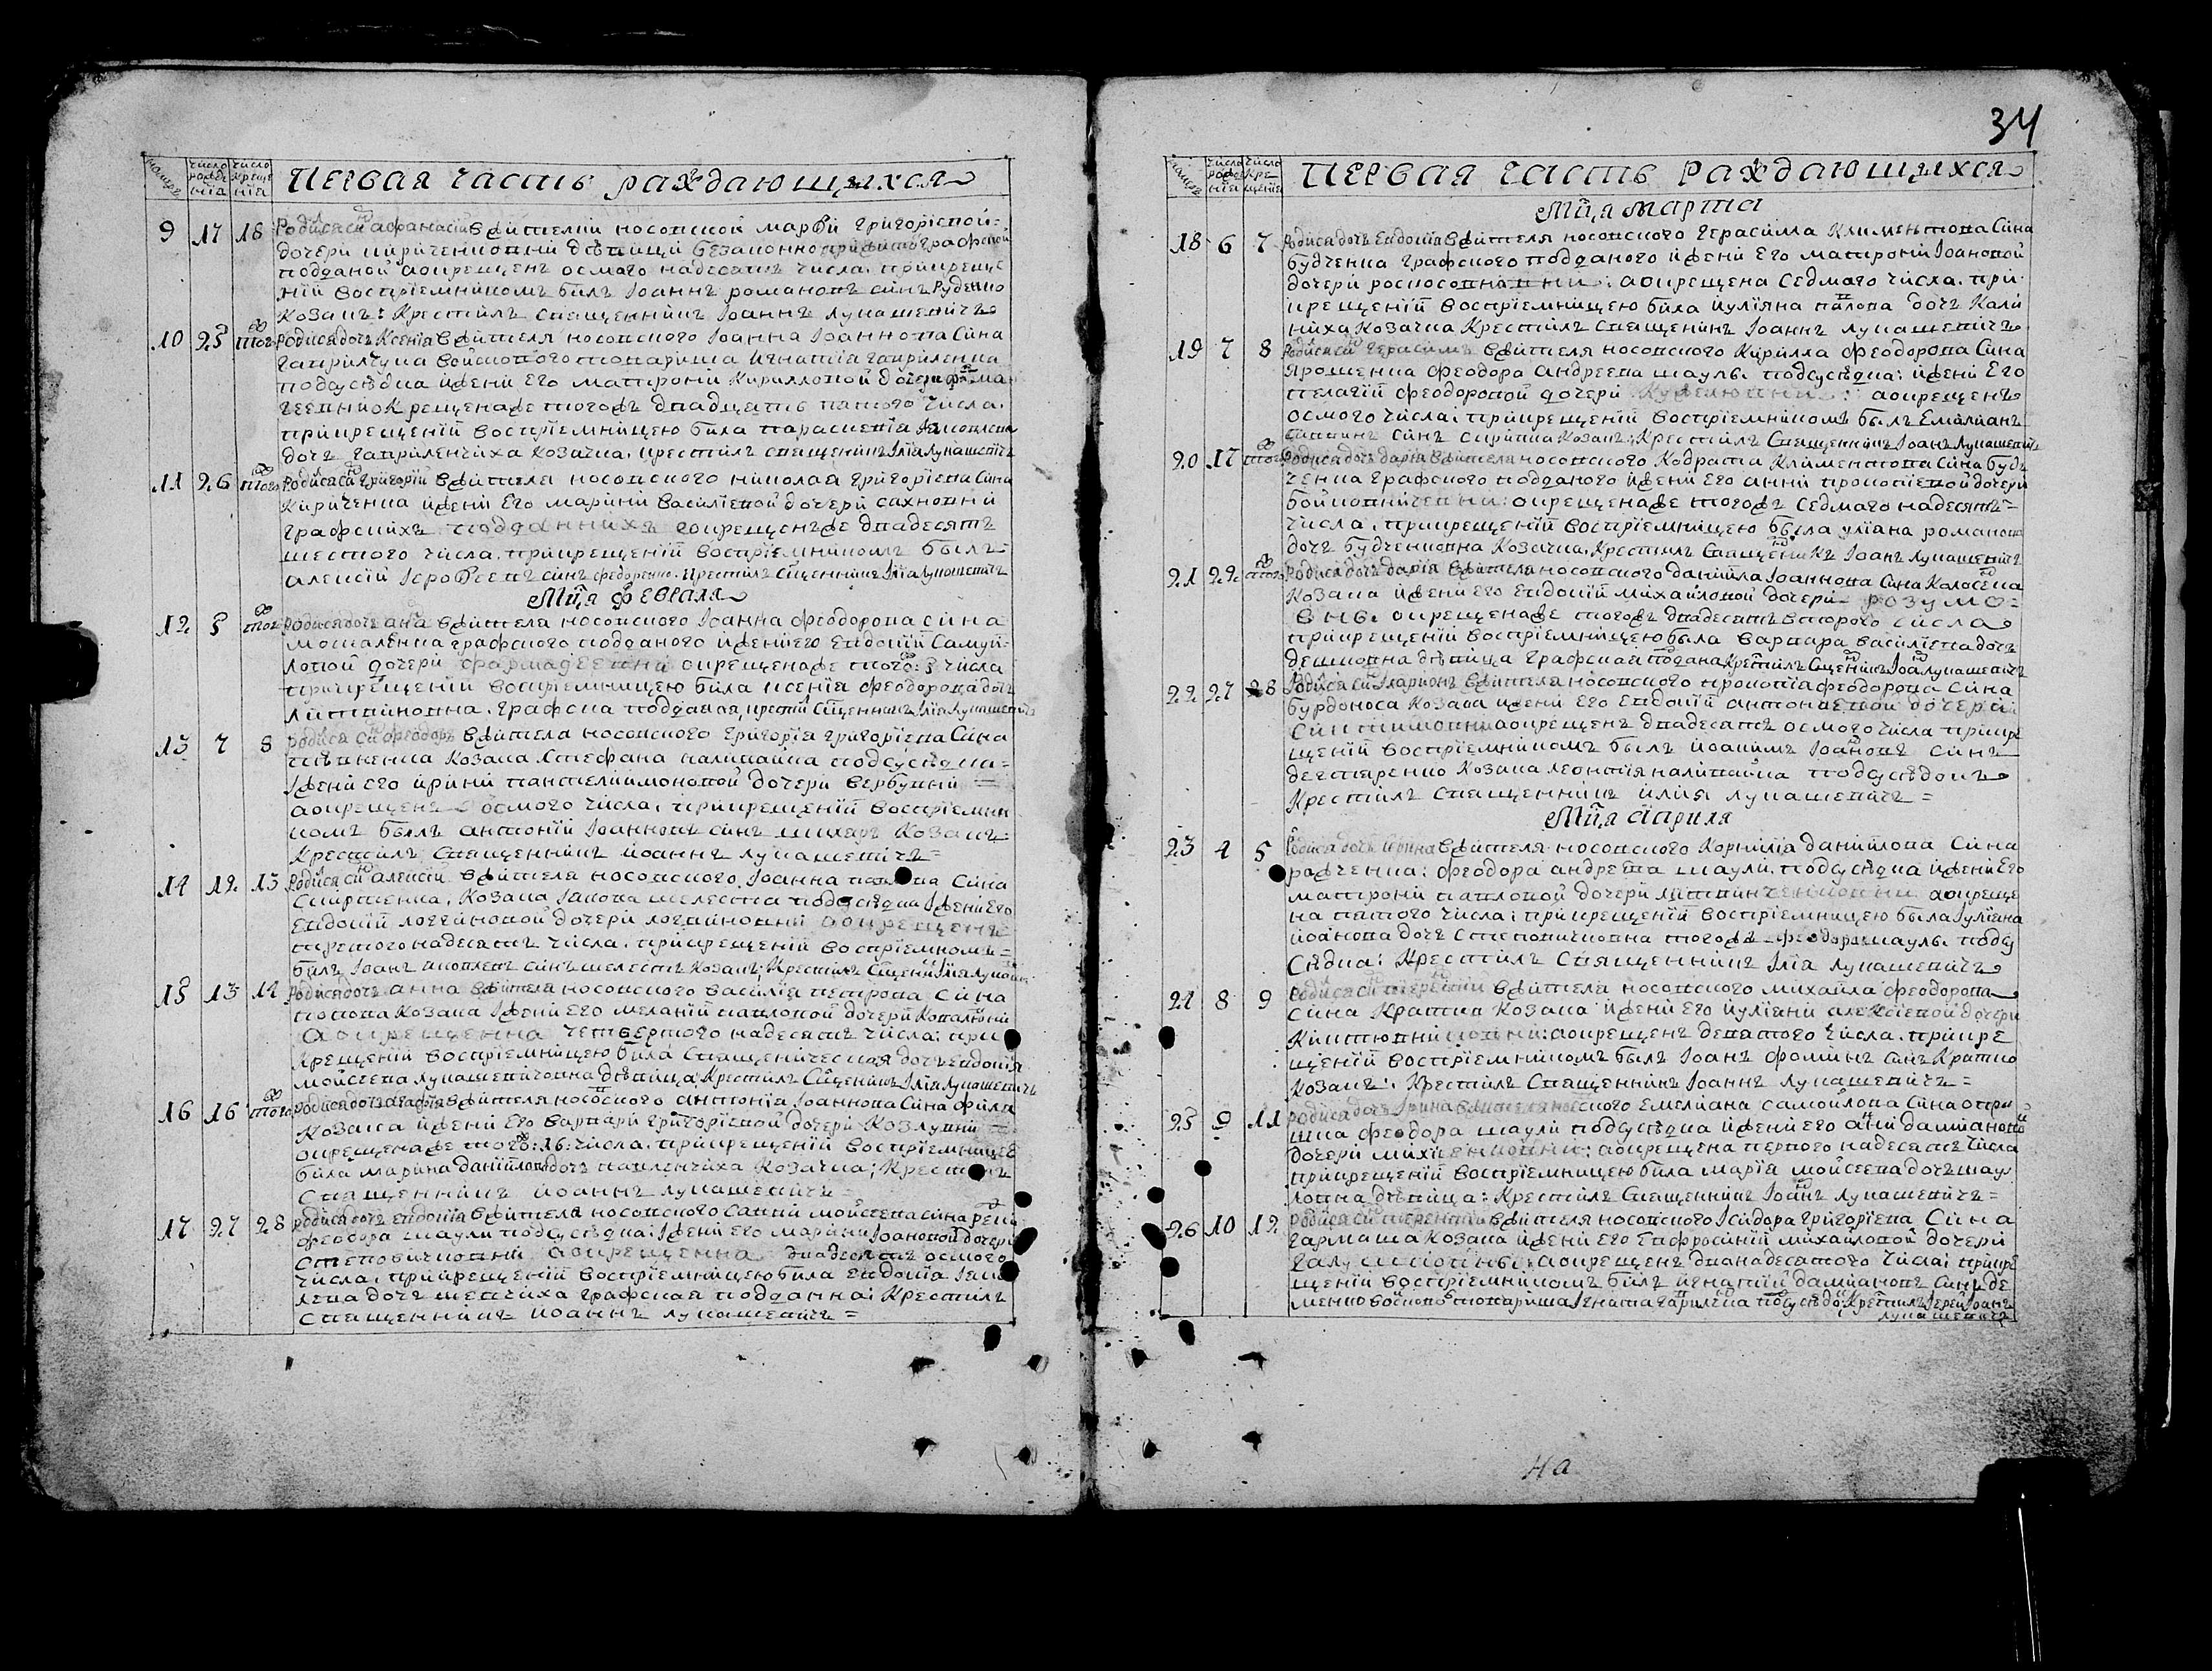 34
номеръ
число рожде нїа
число креще нїа
Первая часть раждающихся
9 17 18 Родился сн҃ъ афанасїй в жителки носовской марфи григорїевой
дочери кириченковни девици беззаконно графской
подданой а окрещенъ осмого надесять числа, при креще
нїй воспрїемникомъ билъ Іоаннъ романовъ синъ руденко
козакъ: Крестилъ священникъ Іоаннъ лукашевичъ
10 25 того Родися дочь Ксенїа в жителя носовского Іоанна Іоаннова Сина
гаврилчука войскового товариша игнатїя гавриленка
подсусѣдка и жени его матрони Кирилловой дочери
Крещена же тогожъ двадцать пятого числа.
при крещенїй воспрїемницею била параскевїа яковлева
дочь гавриленчиха козачка. крестилъ священикъ Ілїа лукашевичъ
11 26 того Родился сн҃ъ григорїй в жителя носовского николая григорїева сина
Кириченка и жени Его марини василїевой дочери сахновни
графскихъ подданнихъ а окрещенъ же двадесять
шестого числа. при крещенїй воспрїемникомъ былъ
алексїй Іерофеевъ синъ федоренко. Крестилъ сщенникъ Ілїа лукашевичъ
Мц҃а февраля
12 5 того Родися дочь анна в жителя носовского Іоанна феодорова сина
москаленка графского подданого и жени его Евдокїй Самуй
ловой дочери окрещена же того: 5 числа
при крещенїй воспрїемницею била ксенїа феодорова дочь
литвиновна. графска подданая, крести сщенникъ Ілїа лукашевичъ
13 7 8 родися сн҃ъ феодоръ в жителя носовского григорїа григорїева сина
пивненка козака Стефана каливайка подсусѣдка
Жени его ирини пантелиймоновой дочери вербицкий
а окрещенъ осмого числа, при крещенїй воспрїемни
комъ былъ антонїй Іоанновъ синъ шихаръ козакъ
Крестилъ священникъ иоаннъ лукашевичъ
14 12 13 Родися сн҃ъ алексїй в жителя носовского Іоанна павлова сина
Смирненка, козака Іакова шелеста подсусѣдка Жени Его
Евдокїй логвиновой дочери логвиновни а окрещенъ
третого надесять числа. при крещенїй воспрїемникомъ
билъ Іоанъ яковлевъ синъ шелестъ козакъ; Крестилъ сщеникъ Ілїа лукашевичъ
15 13 14 Родися дочь анна в жителя носовского василїя петрова Сина
попова козака Жени Его меланїй павловой дочери
а окрещенна четвертого надесять числа: при
Крещенїй воспрїемницею била священическая дочь Евдокїя
мойсеева лукашевичовна дѣвица; Крестилъ Сщеникъ Ілїа лукашевичъ
16 16 того родися дочь агафїа в жителя носовского антонїа Іоаннова Сина фила
козака и жени Его варвари григорїевой дочери Козлувни
окрещена же того: 16: числа. при крещенїй воспрїемницею
била марина данїйлова дочь павленчиха козачка; Крестилъ
Священникъ иоаннъ лукашевичъ
17 27 28 родися дочь евдокїа в жителя носовского мойсеева сина
феодора шаули подсусѣдка: Жени его марини Іоановой дочери
степовичковни а окрещенна двадесять осмого
числа, при крещенїй воспрїемницею била Евдокїа Іаков
лева дочь шевчиха графская подданна: Крестилъ
Священникъ иоаннъ лукашевичъ =
номеръ
число рожде нїя
число кре щенїя
Первая часть раждающихся
Мц҃а марта
18 6 7 Родися дочь Евдокїя в жителя носовского герасима Климентова сина
будченка графского подданого и жени Его матрони Іоановой
дочери: а окрещена Седмого числа. при
крещенїй воспрїемницею била иулїяна павлова дочь Кали
ниха козачка Крестилъ священикъ Іоаннъ лукашевичъ
19 7 8 Родися сн҃ъ герасимъ в жителя носовского Кирилла феодорова Сина
Ярошенка феодора андреева шаулы подсусѣдка: и жени Его
пелагїй феодоровой дочери: а окрещенъ
осмого числа: при крещенїй воспрїемникомъ былъ Емилианъ
саввинъ синъ скрипка козакъ; Крестилъ Священникъ Іоанъ лукашевичъ
20 17 того Родися дочь дарїя в жителя носовского Кодрата Климентова сина буд
ченка графского подданого и жени Его анни прокопїевой дочери
: окрещена же тогожъ седмого надесять
числа, при крещенїй воспрїемницею была улїана романова
дочь будченковна козачка, Крестилъ Священикъ Іоанъ лукашевичъ
21 22 того Родися дочь дарїя в жителя носовского данїила Іоаннова сина
козака и жени Его Евдокїй михайловой дочери розумо
вны. окрещена же тогожъ двадесять второго числа
при крещенїй воспрїемницею была варвара василїева дочь
дешковна дѣвица графская поддана Крестилъ Сщеникъ Іоанъ лукашевичъ
22 27 28 Родися сн҃ъ Іларионъ в жителя носовского прокопїа феодорова сина
бурдоноса козака и жени Его Евдокїй антониевой дочери
а окрещенъ двадесять осмого числа при кре
щенїй воспрїемникомъ былъ иоакимъ Іоановъ синъ
дегтяренко козака леонтїя каливайка подсусѣдокъ
Крестилъ священникъ илїя лукашевичъ =
Мц҃а априля
23 4 5 Родися дочь ирина в жителя носовского Корнилїа данийлова Сина
радченка: феодора андреева шаули. подсусѣдка и жени Его
матрони павловой дочери а окреще
на пятого числа: при крещенїй воспрїемницею была Іулїана
иоанова дочь степовичковна тогожъ феодора шаулы подсу
Сѣдка: Крестилъ Священникъ Ілїа лукашевичъ
24 8 9 в жителя носовского михаила феодорова
Сина Крапивки козака и жени Его иулїани алексїевой дочери
: а окрещенъ девятого числа. при кре
щенїй воспрїемникомъ былъ Іоанъ фоминъ синъ
козакъ: Крестилъ Священникъ Іоаннъ лукашевичъ =
25 9 11 Родися дочь Ірина в жителя носовского Емелиана самойлова Сина
феодора шаули подсусѣдка и жени его анни дамиановой
дочери: а окрещена первого надесять числа
при крещенїй воспрїемницею била марїа мойсеева дочь шау
ловна дѣвица: Крестилъ Священикъ Іоанъ лукашевичъ =
26 10 12 Родися сн҃ъ терентїй в жителя носовского Ісидора григорїева Сина
гармаша козака и жени Его Евфросинїй михайловой дочери
а окрещенъ дванадесятого числа: при кре
щенїй воспрїемникомъ билъ игнатїй дамиановъ синъ де
менко войскового товариша Ігната гаврилчука подсусѣдокъ: Крестилъ Іерей Іоанъ
лукашевичъ
на